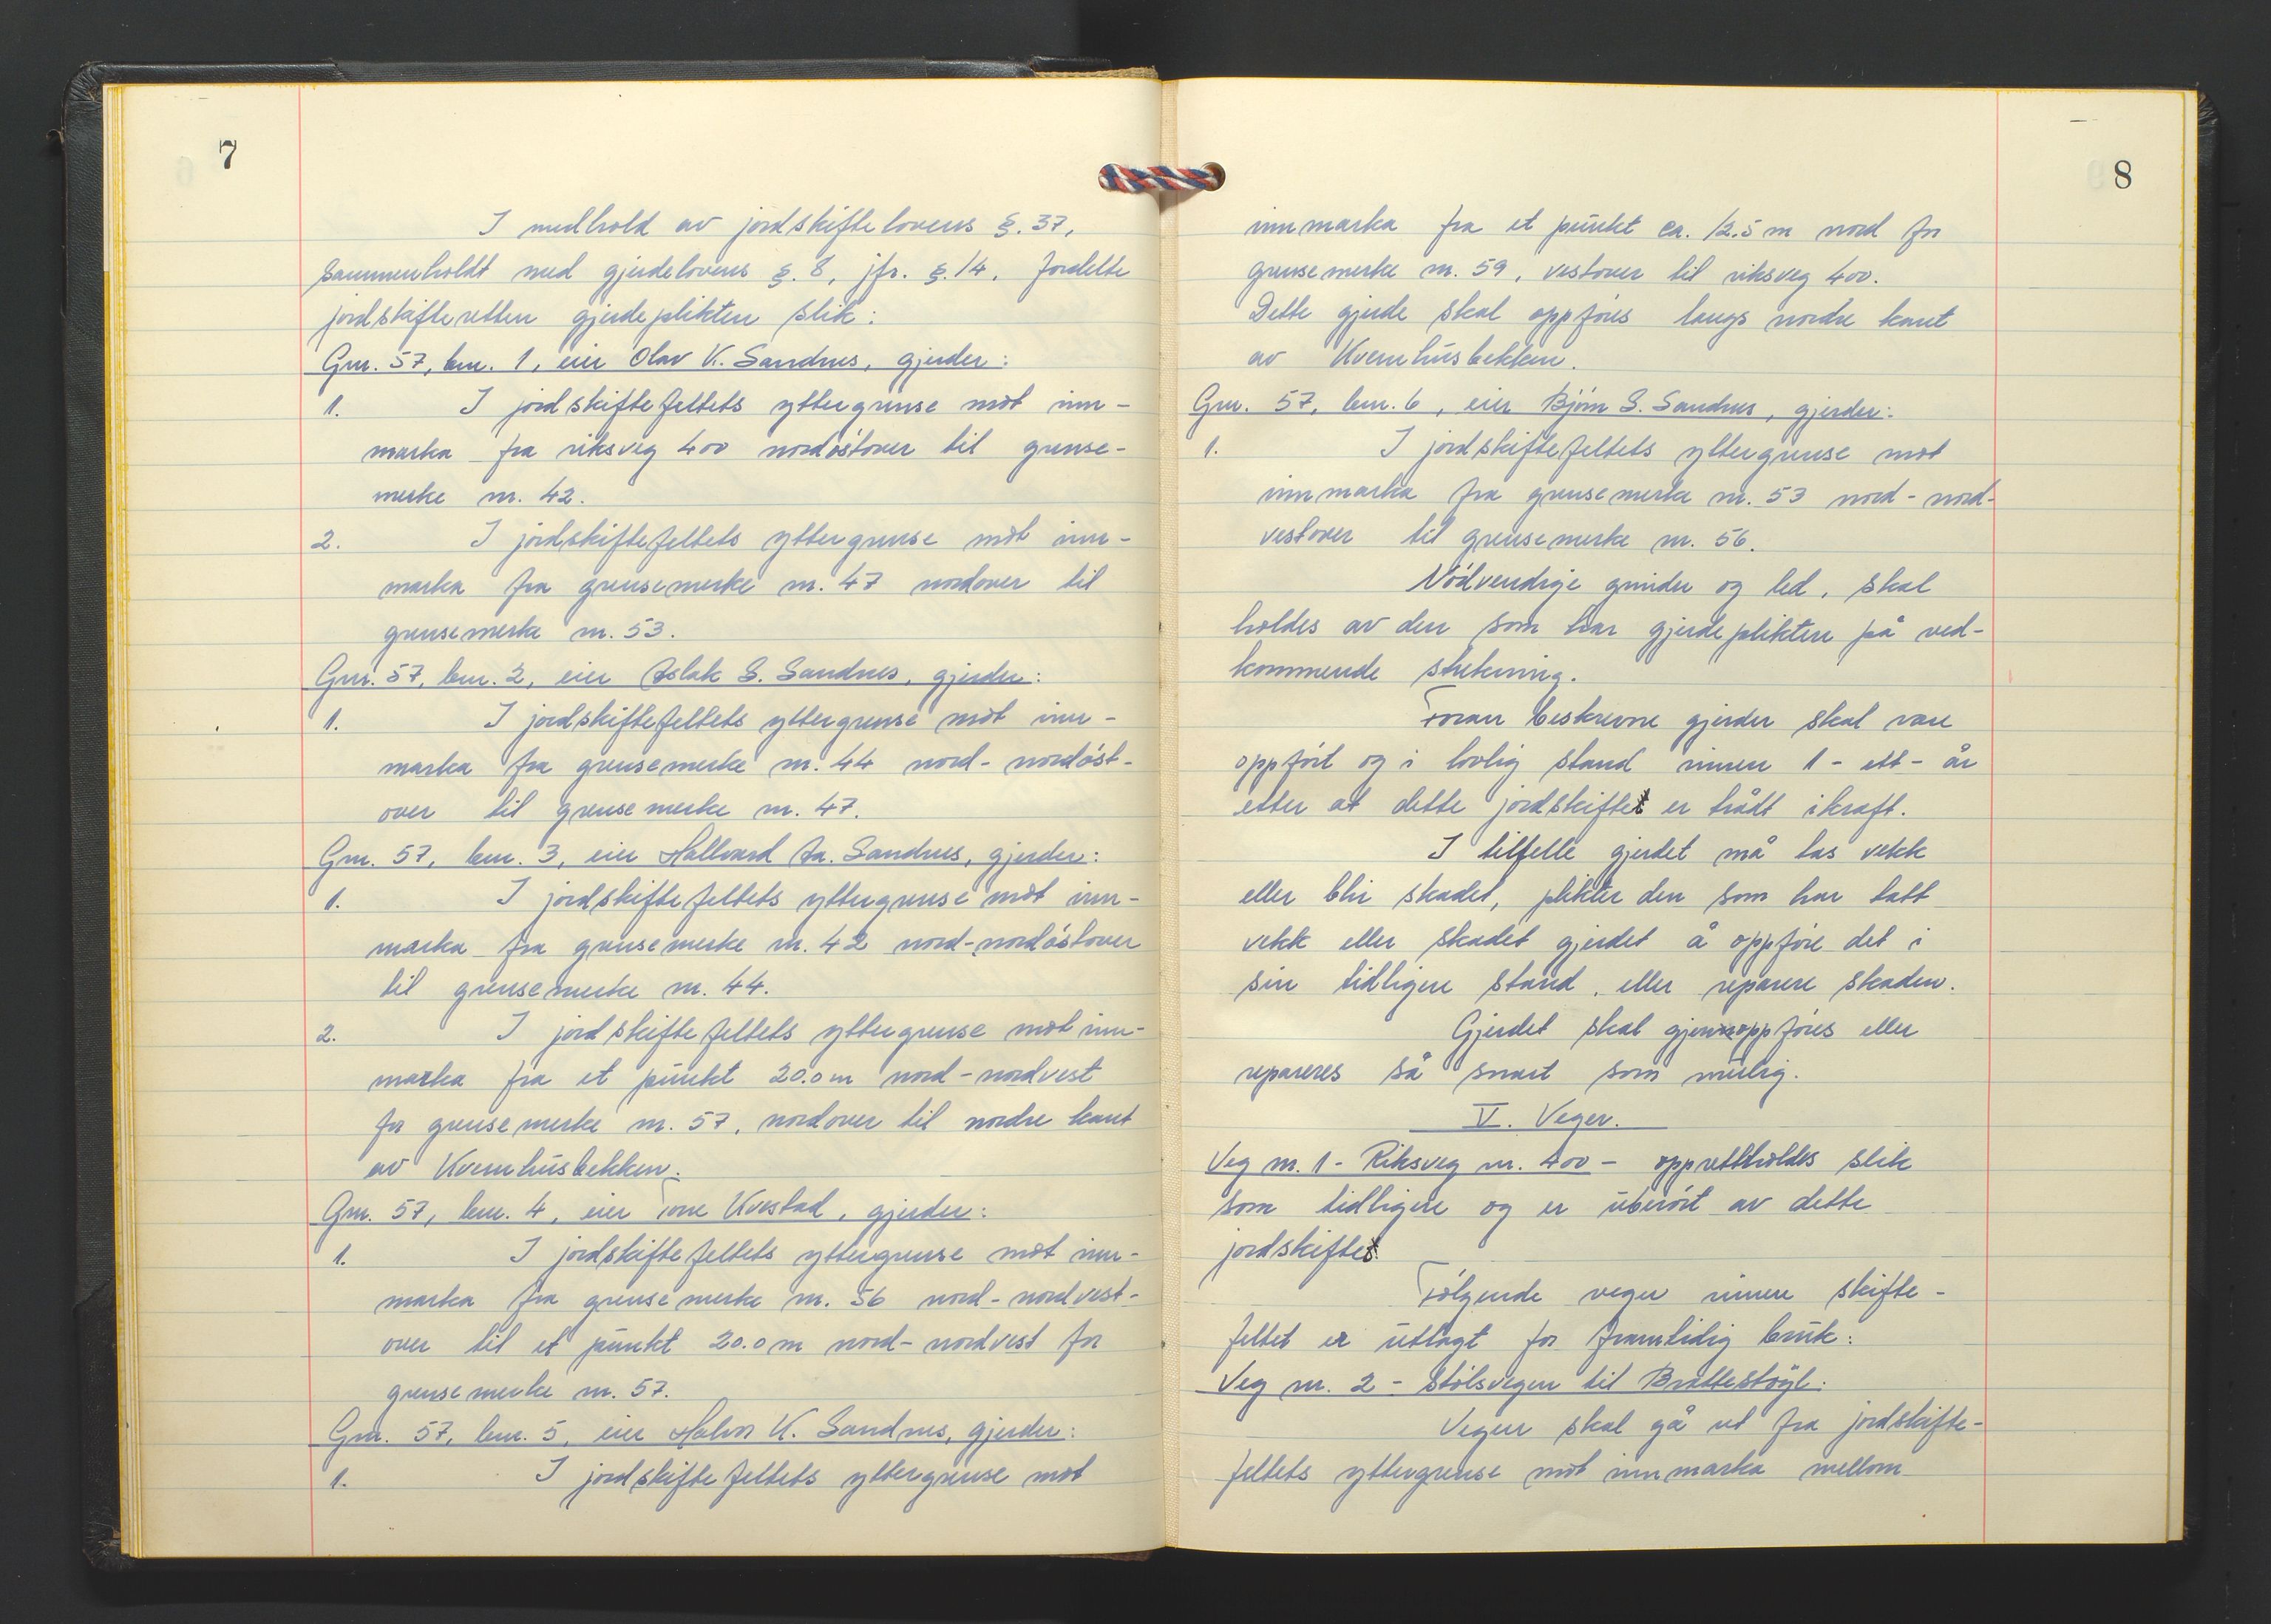 7
I medhold av jordskiftelovens §. 37,
sammenholdt med gjerdelovens §. 8, jfr. §. 14, fordelte
jordskifteretten gjerdeplikten slik:
Gnr. 57, bnr. 1, eier Olav K. Sandnes, gjerder:
1. I jordskiftefeltets yttergrense mot inn-
marka fra riksveg 400 nordöstover til grense-
merke nr. 42.
2. I jordskiftefeltets yttergrense mot inn-
marka fra grensemerke nr. 47 nordover til
grensemerke nr. 53.
Gnr. 57, bnr. 2, eier Aslak S. Sandnes, gjerder:
1. I jordskiftefeltets yttergrense mot inn-
marka fra grensemerke nr. 44 nord-nordöst-
over til grensemerke nr. 47.
Gnr. 57, bnr. 3, eier Hallvard Aa. Sandnes, gjerder:
1. I jordskiftefeltets yttergrense mot inn-
marka fra grensemerke nr. 42 nord-nordöstover
til grensemerke nr. 44.
2. I jordskiftefeltets yttergrense mot inn-
marka fra et punkt 20.0 m nord-nordvest
for grensemerke nr. 57, nordover til nordre kant
av Kvernhusbekken.
Gnr. 57, bnr. 4, eier Tone Kvestad, gjerder:
1. I jordskiftefeltets yttergrense mot inn-
marka fra grensemerke nr. 56 nord-nordvest-
over til et punkt 20.0 m nord-nordvest for
grensemerke nr. 57.
Gnr. 57, bnr. 5, eier Halvor K. Sandnes, gjerder:
1. I jordskiftefeltets yttergrense mot
8
innmarka fra et punkt ca. 12.5 m nord for
grensemerke nr. 59, vestover til riksveg 400.
Dette gjerde skal oppföres langs nordre kant
av Kvernhusbekken.
Gnr. 57, bnr. 6, eier Björn S. Sandnes, gjerder:
1. I jordskiftefeltets yttergrense mot
innmarka fra grensemerke nr. 53 nord-nord-
vestover til grensemerke nr. 56.
Nödvendige grinder og led, skal
holdes av den som har gjerdeplikten på ved-
kommende strekning.
Foran beskrevne gjerder skal være
oppfört og i lovlig stand innen 1 - ett - år
etter at dette jordskiftet er trådt ikraft.
I tilfelle gjerdet må tas vekk
eller blir skadet, plikter den som har tatt
vekk eller skadet gjerdet å oppföre det i
sin tidligere stand, eller reparere skaden.
Gjerdet skal gjenoppföres eller
repareres så snart som mulig.
V. Veger.
Veg nr. 1 - Riksveg nr. 400 - opprettholdes slik
som tidligere og er uberört av dette
jordskiftet.
Fölgende veger innen skifte-
feltet er utlagt for framtidig bruk:
Veg nr. 2 - Stölsvegen til Brattestöyl:
Vegen skal gå ut fra jordskifte-
feltets yttergrense mot innmarka mellom